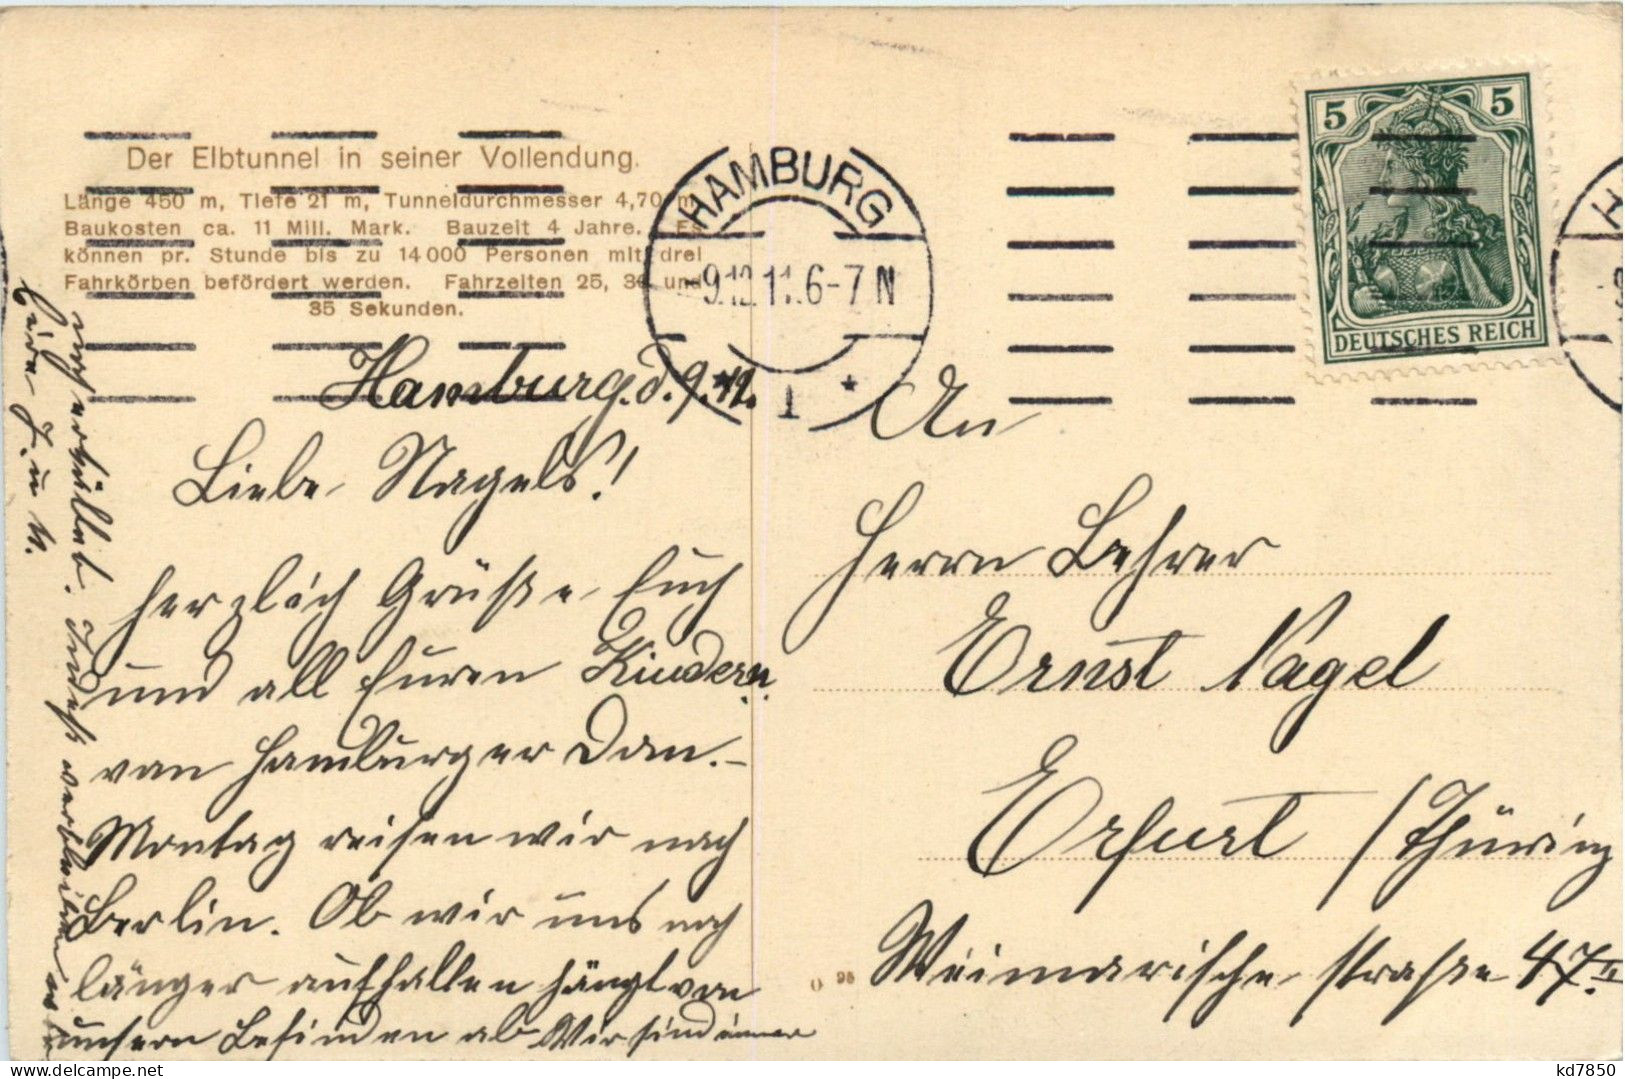 Der Elbtunnel in seiner Vollendung.
Länge 450 m, Tiefe 21 m, Tunneldurchmesser 4,70 m,
Baukosten ca. 11 Mill. Mark. Bauzeit 4 Jahre. Es
können pr. Stunde bis zu 14000 Personen mit drei
Fahrkörben befördert werden. Fahrzeiten 25, 30 und
35 Sekunden.
HAMBURG
9.12.11.6-7 N
* 1 *
5 5
DEUTSCHES REICH
Hamburg. d. 9.12.
Liebe Nagels!
Herzlich Grüße Euch
und all Euren Kindern.
von Hamburger Dom.-
Montag reisen wir nach
Berlin. Ob wir uns noch
länger aufhalten hängt von
unsern Befinden ab Wir sind immer
erkältet. Indeß verbleiben
Eure J. u
An
Herrn Lehrer
Ernst Nagel
Erfurt / Thüring
Weimarische straße 47 II
kd7850